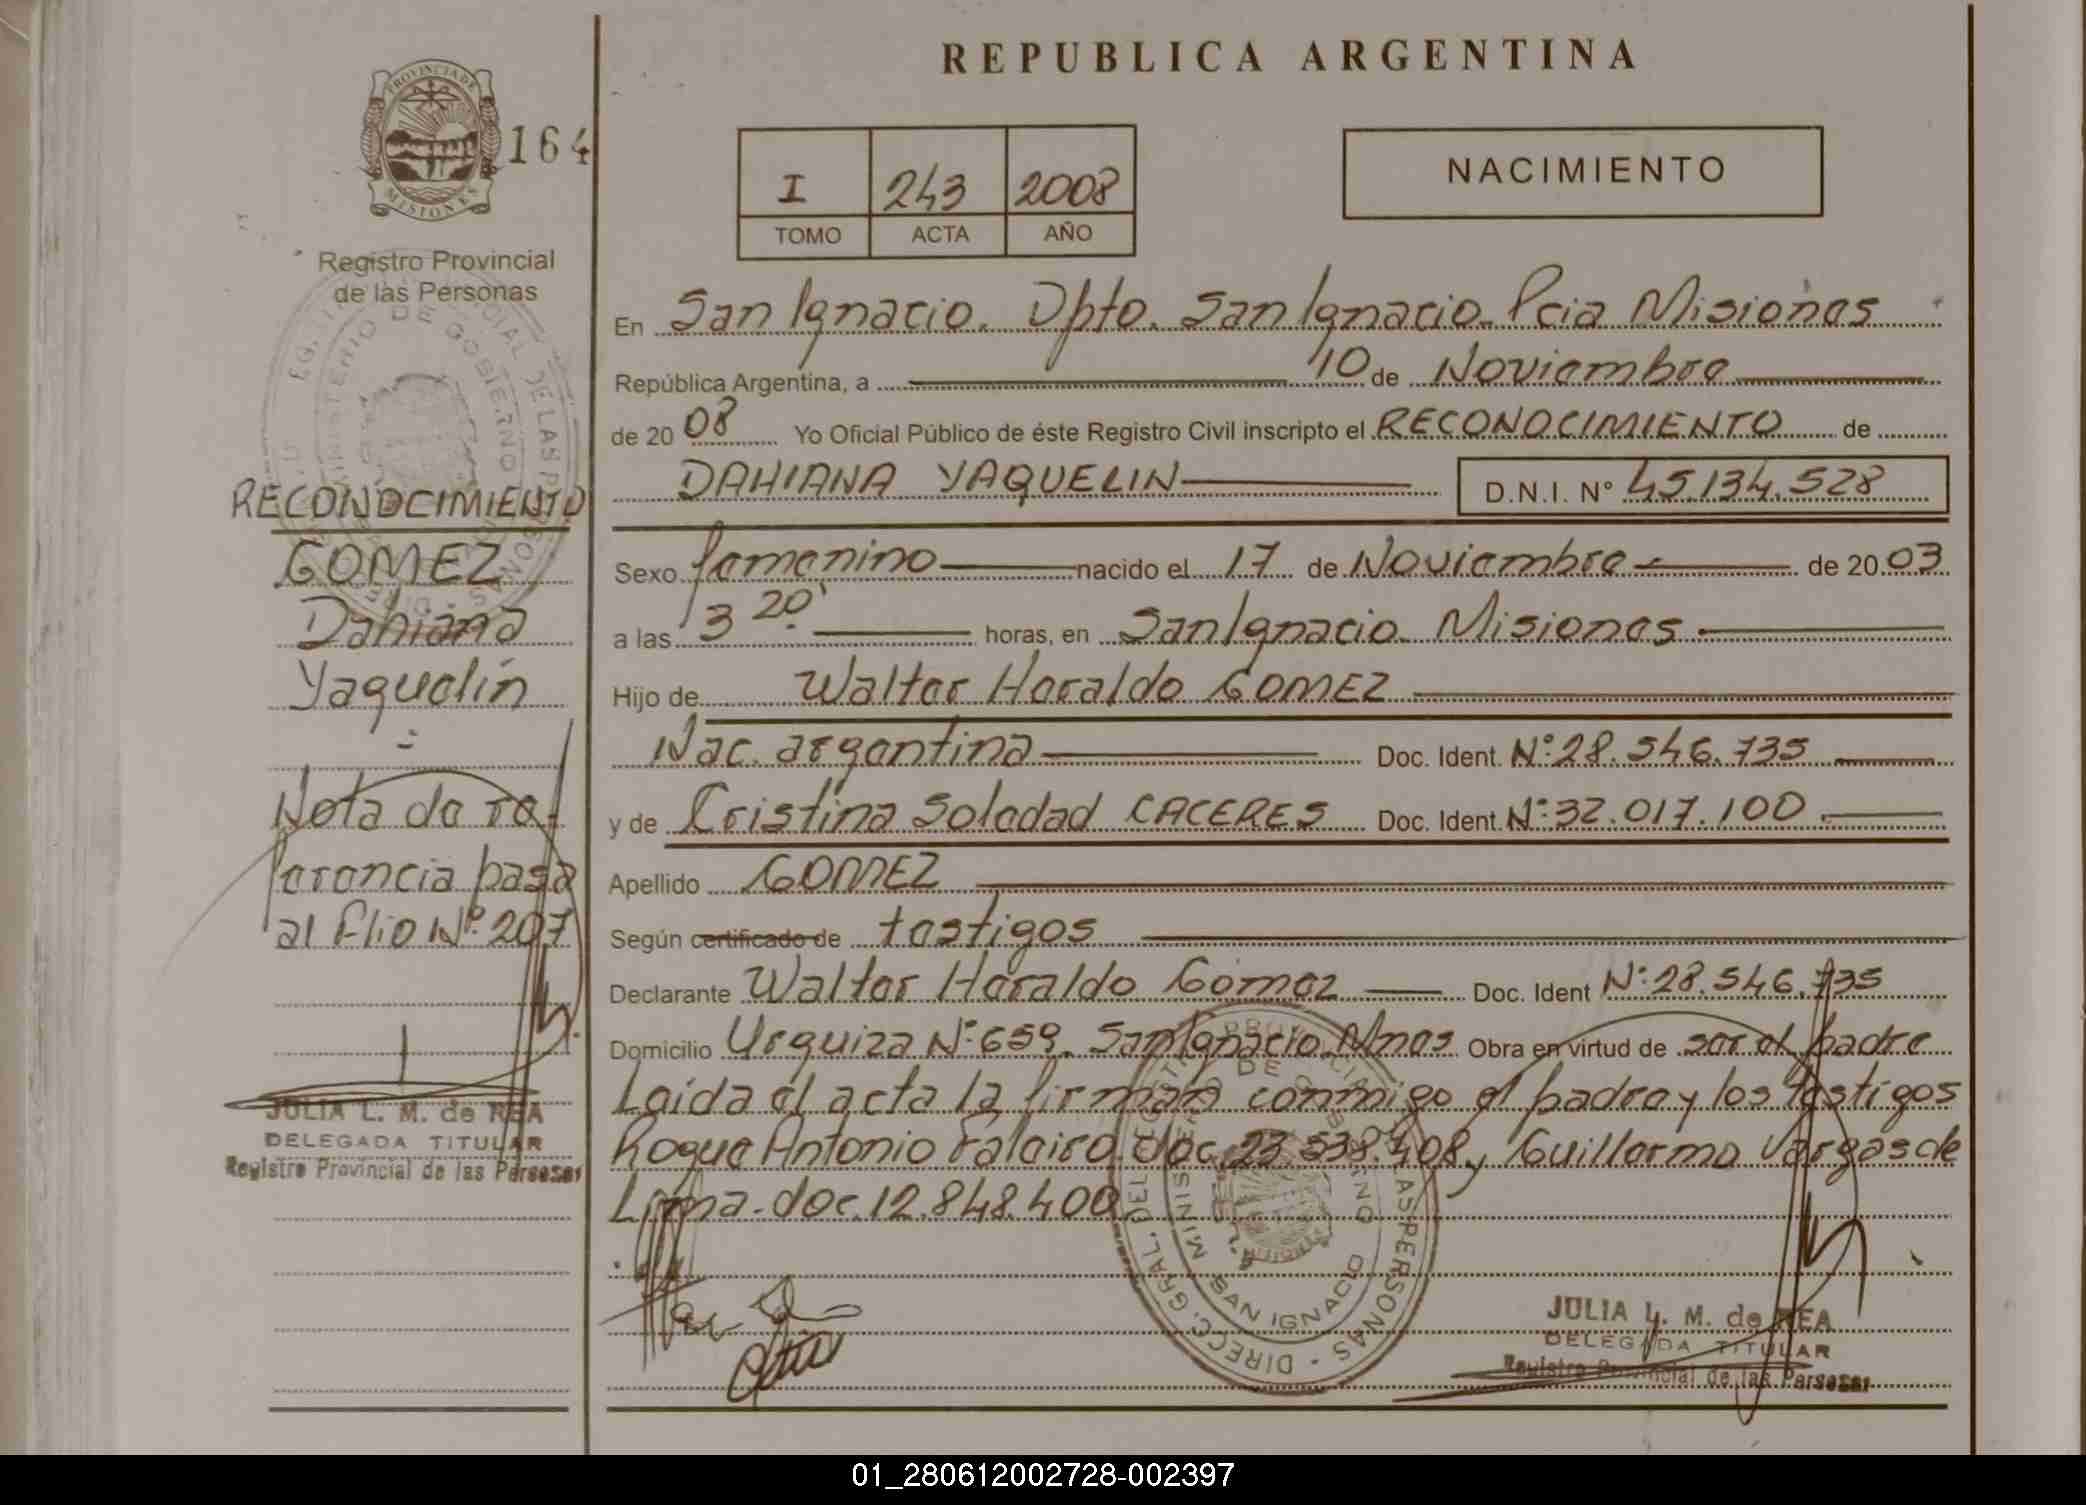 REPUBLICA ARGENTINA
PROVINCIA DE
MISIONES
164
I 243 2008
TOMO ACTA AÑO
NACIMIENTO
Registro Provincial
de las Personas
En San Ignacio. Dpto. San Ignacio. Pcia Misiones
República Argentina, a 10 de Noviembre
de 20 08 Yo Oficial Público de éste Registro Civil inscripto el RECONOCIMIENTO de
DAHIANA YAQUELIN D.N.I. N° 45.134.528
Sexo femenino nacido el 17 de Noviembre de 20 03
a las 3 20' horas, en San Ignacio Misiones
Hijo de Walter Heraldo GOMEZ
Nac. argentina Doc. Ident. N° 28.546.735
y de Cristina Soledad CACERES Doc. Ident. N° 32.017.100
Apellido GOMEZ
Según certificado de testigos
Declarante Walter Heraldo Gomez Doc. Ident N° 28.546.735
Domicilio Urquiza N° 659. San Ignacio Mnes Obra en virtud de ser el padre
Leida el acta la firman conmigo el padre y los testigos
Roque Antonio Faleiro. doc. 23.538.408 y Guillermo Vargas de
Lima. doc. 12.848.400
RECONOCIMIENTO
GOMEZ
Dahiana
Yaquelin
Nota de re-
ferencia pasa
al flio N° 207
JULIA L. M. de REA
DELEGADA TITULAR
Registro Provincial de las Personas
DIRECC. GRAL. DEL REGISTRO PROVINCIAL DE LAS PERSONAS
MINISTERIO DE GOBIERNO
SAN IGNACIO
JULIA L. M. de REA
DELEGADA TITULAR
Registro Provincial de las Personas
01_280612002728-002397